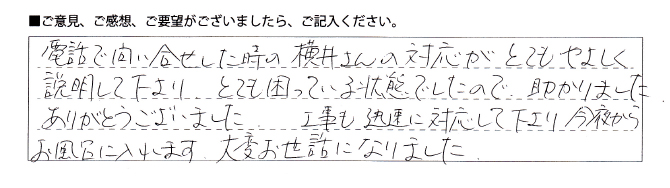 ■ご意見、ご感想、ご要望がございましたら、ご記入ください。
電話で問い合せした時の横井さんの対応がとてもやさしく
説明して下より、とても困っている状態でしたので、助かりました
ありがとうございました　工事も迅速に対応して下より今夜から
お風呂に入れます、大変お世話になりました、